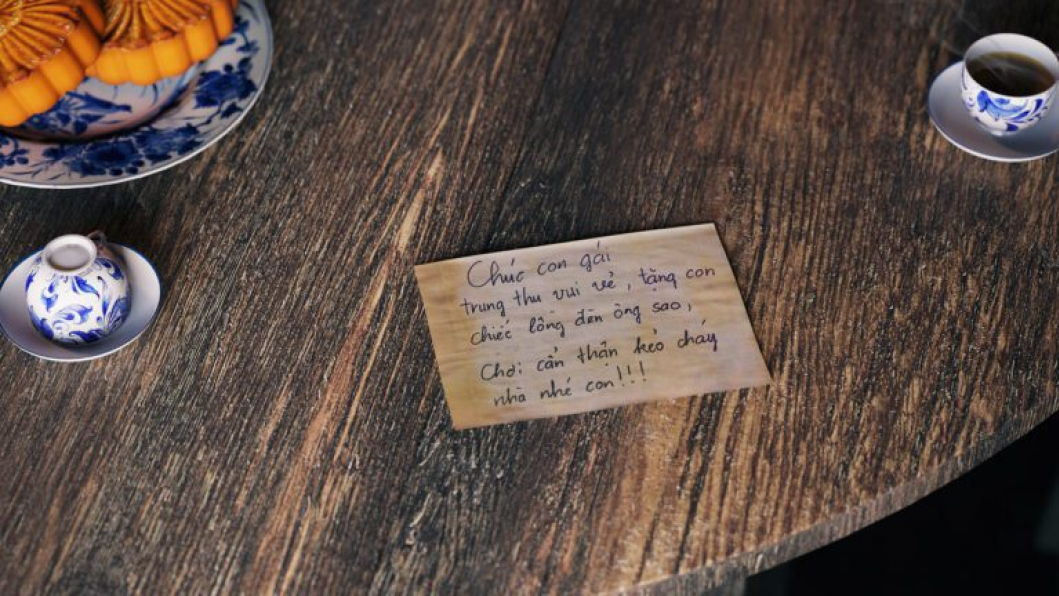 Chúc con gái
trung thu vui vẻ, tặng con
chiếc lồng đèn ông sao,
Chơi cẩn thận kẻo cháy
nhà nhé con!!!